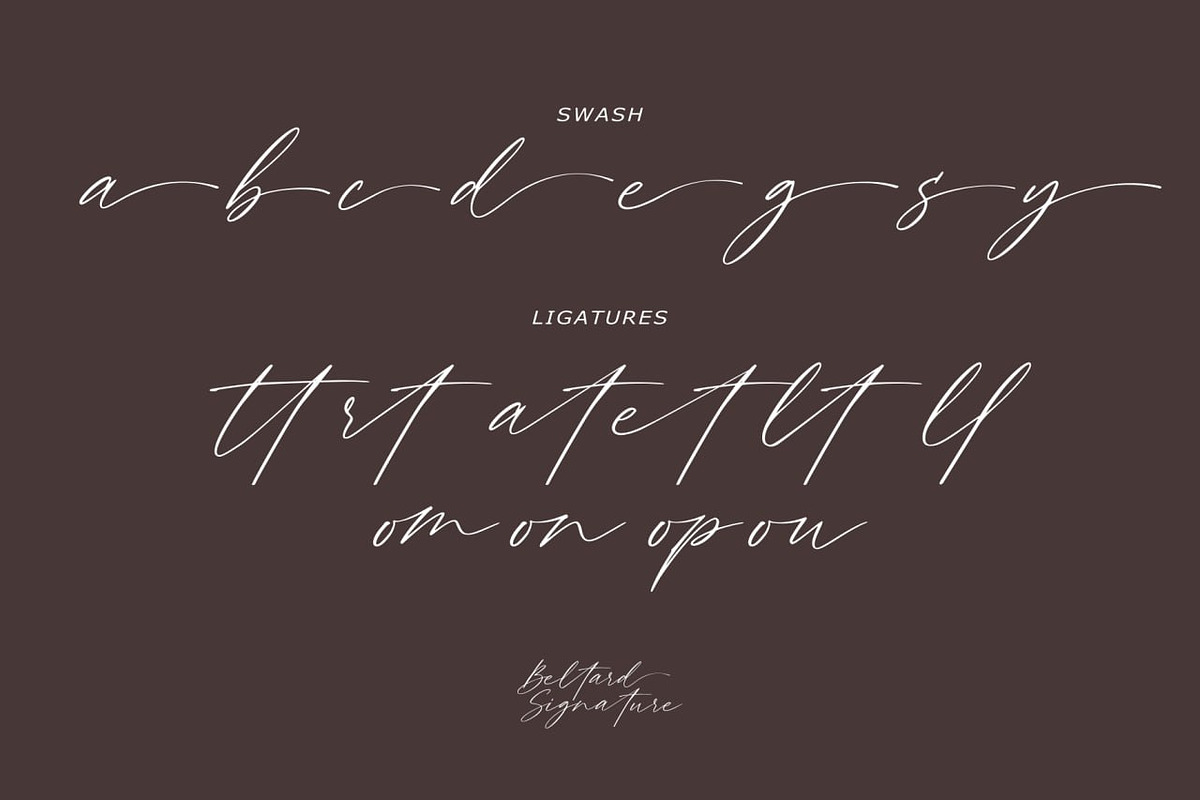 SWASH
a b c d e g s y
LIGATURES
tt rt at et lt ll
om on op ou
Beltard
Signature